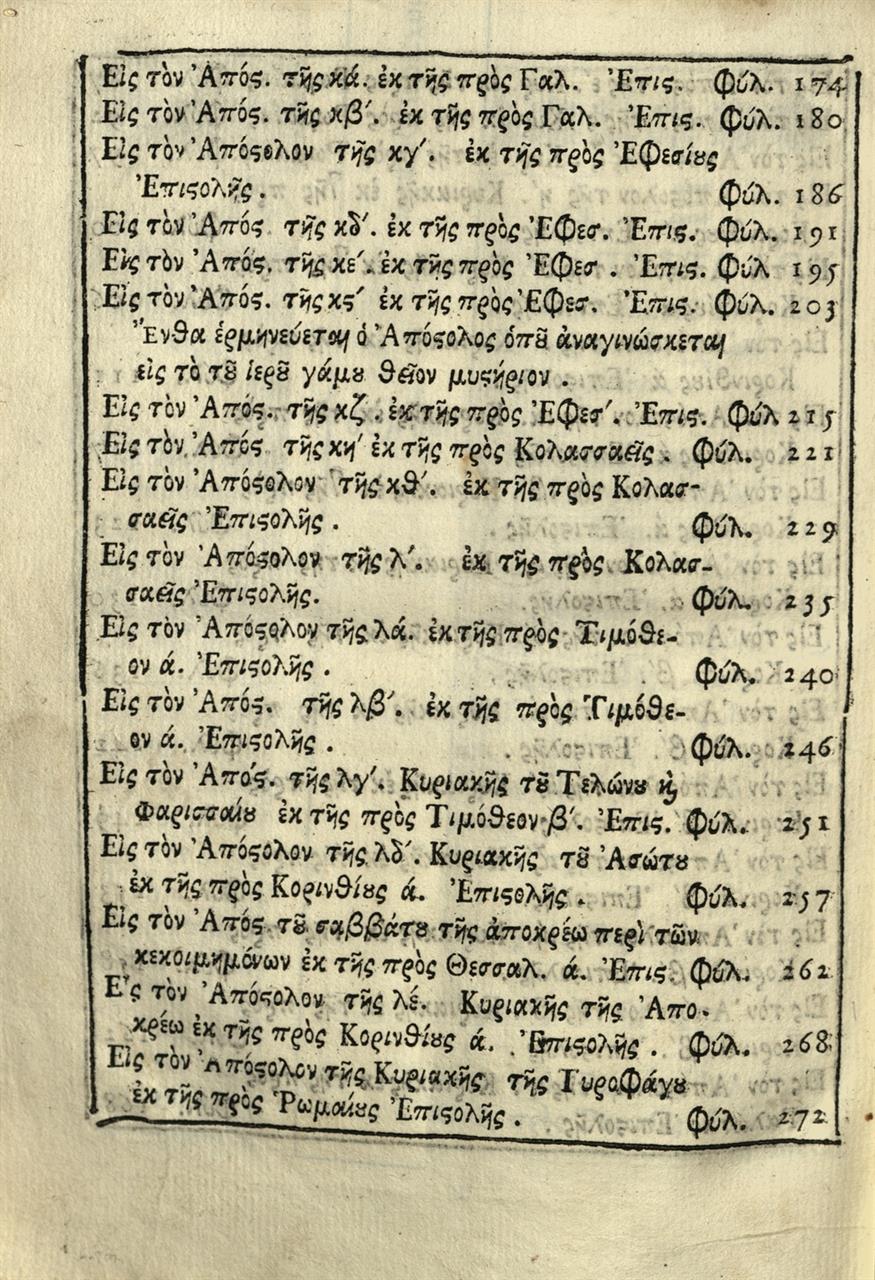 Εἰς τὸν Ἀπός. τῆς κά. ἐκ τῆς πρὸς Γαλ. Ἐπις. Φύλ. 174
Εἰς τὸν Ἀπός. τῆς κβ´. ἐκ τῆς πρὸς Γαλ. Ἐπις. Φύλ. 180
Εἰς τὸν Ἀπόςολον τῆς κγ´. ἐκ τῆς πρὸς Ἐφεσίȣς
Ἐπιςολῆς. Φύλ. 186
Εἰς τὸν Ἀπός τῆς κδ´. ἐκ τῆς πρὸς Ἐφεσ. Ἐπις. Φύλ. 191
Εἰς τὸν Ἀπός. τῆς κε´. ἐκ τῆς πρὸς Ἐφεσ. Ἐπις. Φύλ 195
Εἰς τὸν Ἀπός. τῆς κς´ ἐκ τῆς πρὸς Ἐφεσ. Ἐπις. Φύλ. 203
Ἔνθα ἑρμηνεύεται ὁ Ἀπόςολος ὁπȣ͂ ἀναγινώσκεται
εἰς τὸ τȣ͂ ἱερȣ͂ γάμȣ θεῖον μυςήριον.
Εἰς τὸν Ἀπός. τῆς κζ. ἐκ τῆς πρὸς Ἐφεσ´. Ἐπις. Φύλ 215
Εἰς τὸν Ἀπός τῆς κη´ ἐκ τῆς πρὸς Κολασσαεῖς. Φύλ. 221
Εἰς τὸν Ἀπόςολον τῆς κθ´. ἐκ τῆς πρὸς Κολασ-
σαεῖς Ἐπιςολῆς. Φύλ. 229
Εἰς τὸν Ἀπόςολον τῆς λ´. ἐκ τῆς πρὸς Κολασ-
σαεῖς Ἐπιςολῆς. Φύλ. 235
Εἰς τὸν Ἀπόςολον τῆς λά. ἐκ τῆς πρὸς Τιμόθε-
ον ά. Ἐπιςολῆς. Φύλ. 240
Εἰς τὸν Ἀπός. τῆς λβ´. ἐκ τῆς πρὸς Τιμόθε-
ον ά. Ἐπιςολῆς. Φύλ. 246
Εἰς τὸν Ἀπός. τῆς λγ´. Κυριακῆς τȣ͂ Τελώνȣ ϗ
Φαρισσαίȣ ἐκ τῆς πρὸς Τιμόθεον β´. Ἐπις. Φύλ. 251
Εἰς τὸν Ἀπόςολον τῆς λδ´. Κυριακῆς τȣ͂ Ἀσώτȣ
ἐκ τῆς πρὸς Κορινθίȣς ά. Ἐπιςολῆς. Φύλ. 257
Εἰς τὸν Ἀπός τȣ͂ σαββάτȣ τῆς ἀποκρέω περὶ τῶν
κεκοιμημένων ἐκ τῆς πρὸς Θεσσαλ. ά. Ἐπις. Φύλ. 262
Εἰς τὸν Ἀπόςολον τῆς λέ. Κυριακῆς τῆς Ἀπο-
κρέω ἐκ τῆς πρὸς Κορινθίȣς ά. Ἐπιςολῆς. Φύλ. 268
Εἰς τὸν Ἀπόςολον τῆς Κυριακῆς τῆς Τυροφάγȣ
ἐκ τῆς πρὸς Ῥωμαίȣς Ἐπιςολῆς. Φύλ. 272